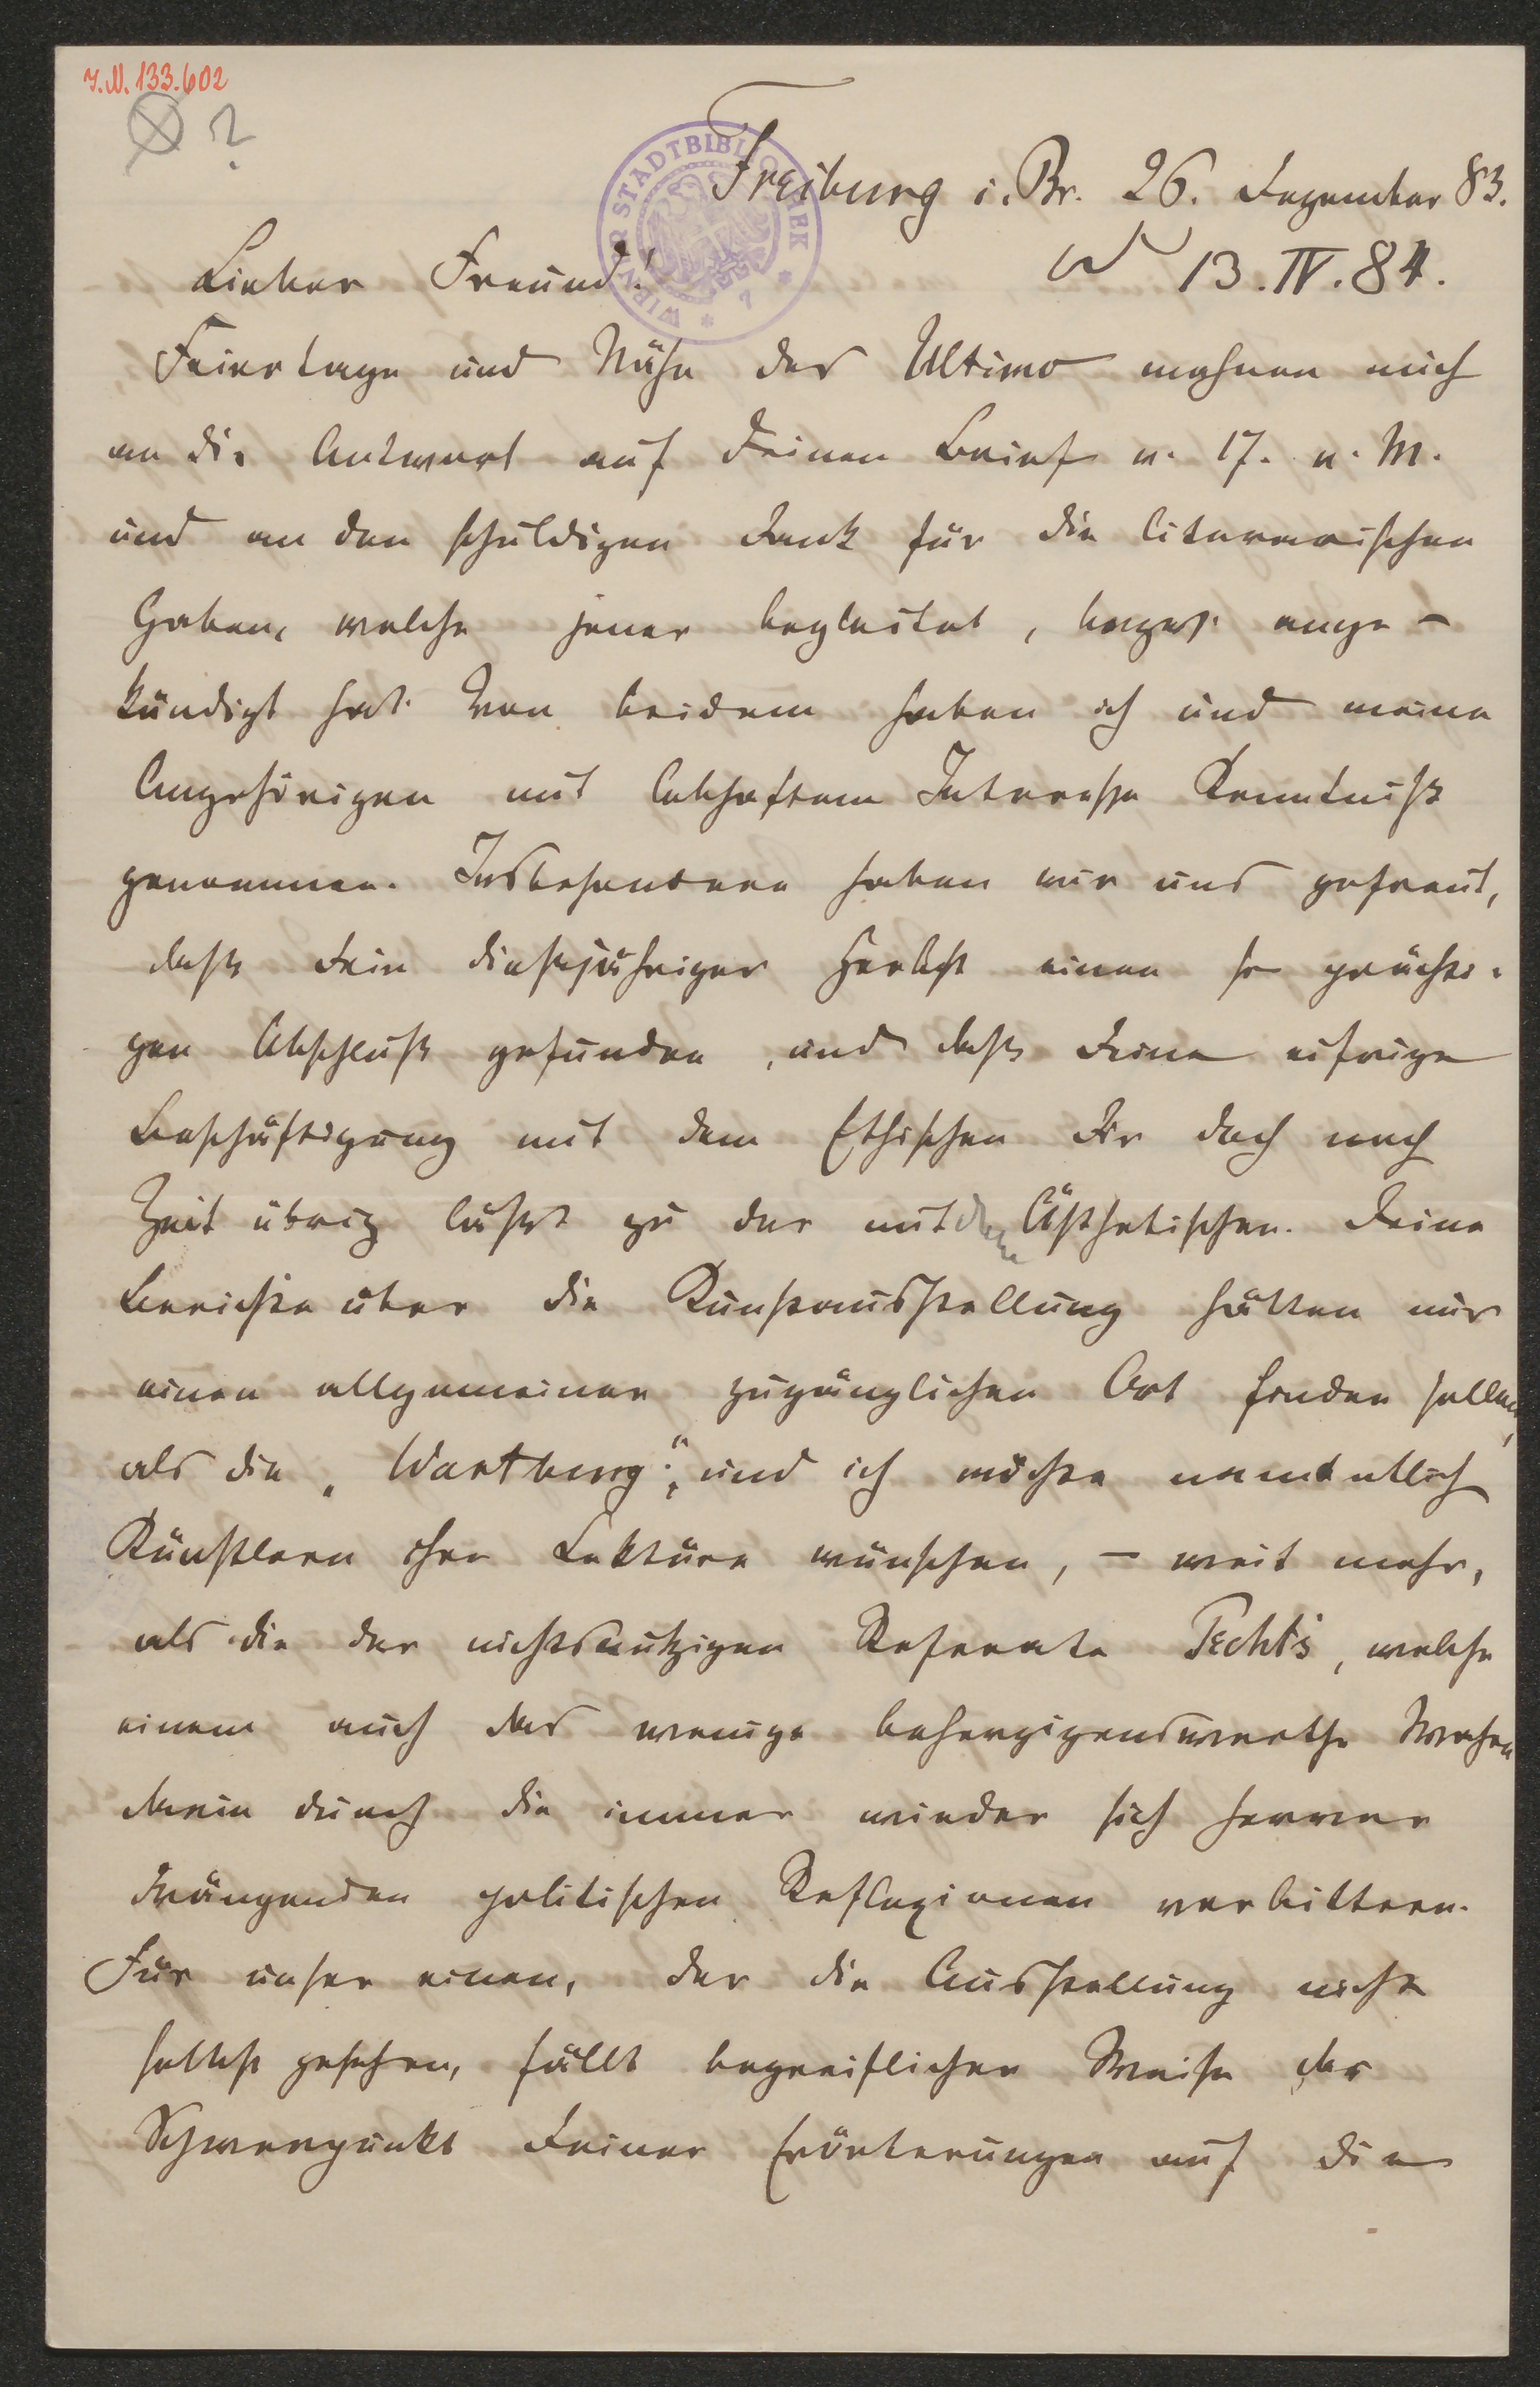 I.N. 133.602
?
WIENER STADTBIBLIOTHEK
Freiburg i. Br. 26. Dezember 83.
13. IV. 84.
Lieber Freund!
Feiertage und Nähe des Ultimo mahnen mich
an die Antwort auf Deinen Brief v. 17. v. M.
und an den schuldigen Dank für die literarischen
Gaben, welche jener begleitet, bezw. ange-
kündigt hat. Von beidem haben ich und meine
Angehörigen mit lebhaftem Interesse Kenntniß
genommen. Insbesondere haben wir uns gefreut,
daß Dein dießjähriger Herbst einen so prächti-
gen Abschluß gefunden, und daß Deine eifrige
Beschäftigung mit dem Ethischen Dir doch noch
Zeit übrig läßt zu der mit dem Ästhetischen. Deine
Berichte über die Kunstausstellung hätten nur
einen allgemeiner zugänglichen Ort finden sollen,
als die „Wartburg“, und ich möchte namentlich
Künstlern ihre Lektüre wünschen, – weit mehr,
als die der nichtsnutzigen Referate Pecht's, welche
einem auch das wenige beherzigenswerthe Wahre
darin durch die immer wieder sich hervor
drängenden politischen Reflexionen verbittern.
Für unser einen, der die Ausstellung nicht
selbst gesehen, fällt begreiflicher Weise der
Schwerpunkt Deiner Erörterungen auf die